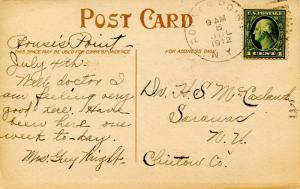 POST CARD
THIS SPACE MAY BE USED FOR CORRESPONDENCE
FOR ADDRESS ONLY
9 AM
5
JUL
1912
N.Y.
U.S. POSTAGE
1 CENT 1
Rouse's Point
July 4th.
Well doctor I
am feeling very
good here. Have
been here one
week to-day.
Mrs. Guy Wright.
Dr. H. S. McCasland
Saranac
N. Y.
Clinton Co.